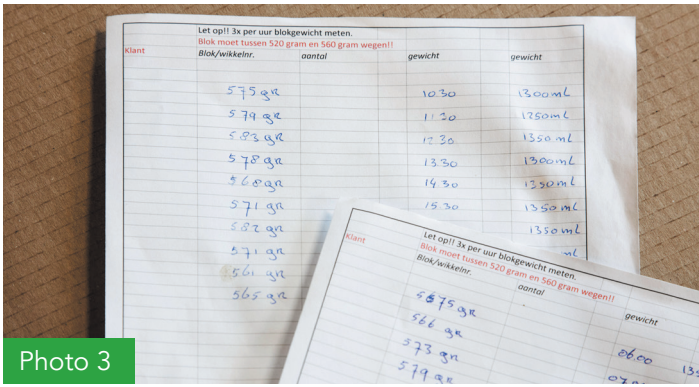 Let op!! 3x per uur blokgewicht meten.
Blok moet tussen 520 gram en 560 gram wegen!!
Klant Blok/wikkelnr. aantal gewicht gewicht
575 gr 10 30 1300 ml
579 gr 11 30 1250 ml
583 gr 12 30 1350 ml
578 gr 13 30 1300 ml
568 gr 14 30 1350 ml
571 gr 15 30 1350 ml
582 gr 1350 ml
571 gr ml
561 gr
565 gr
Let op!! 3x per uur blokgewicht meten.
Blok moet tussen 520 gram en 560 gram wegen!!
Klant Blok/wikkelnr. aantal gewicht
5675 gr 06.00
566 gr
573 gr
579 gr
Photo 3